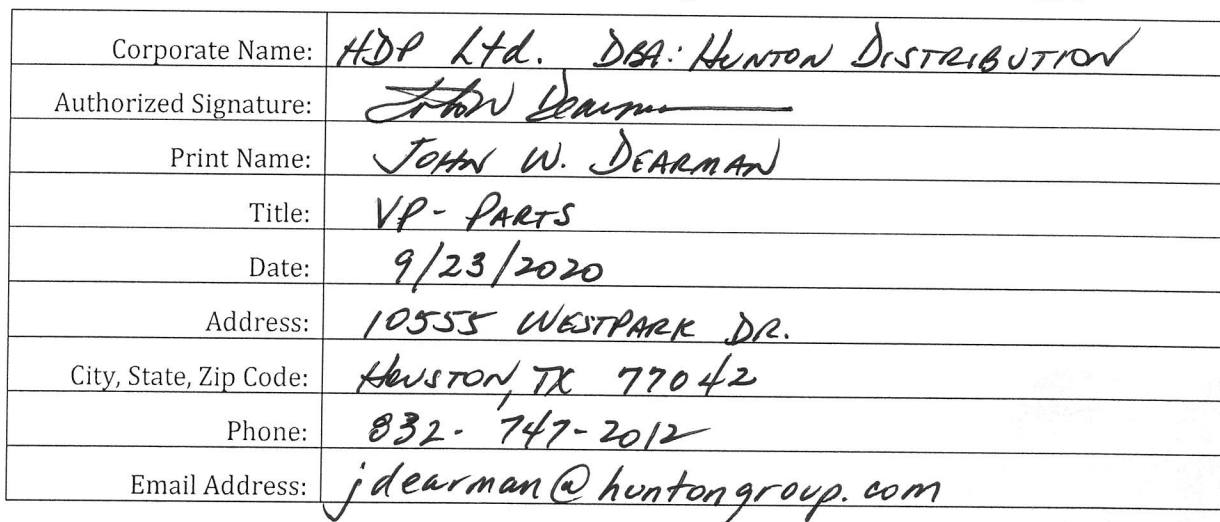 Corporate Name: HDP Ltd. DBA: HUNTON DISTRIBUTION
Authorized Signature: John Dearman
Print Name: JOHN W. DEARMAN
Title: VP - PARTS
Date: 9/23/2020
Address: 10555 WESTPARK DR.
City, State, Zip Code: HOUSTON, TX 77042
Phone: 832- 747-2012
Email Address: jdearman@huntongroup.com